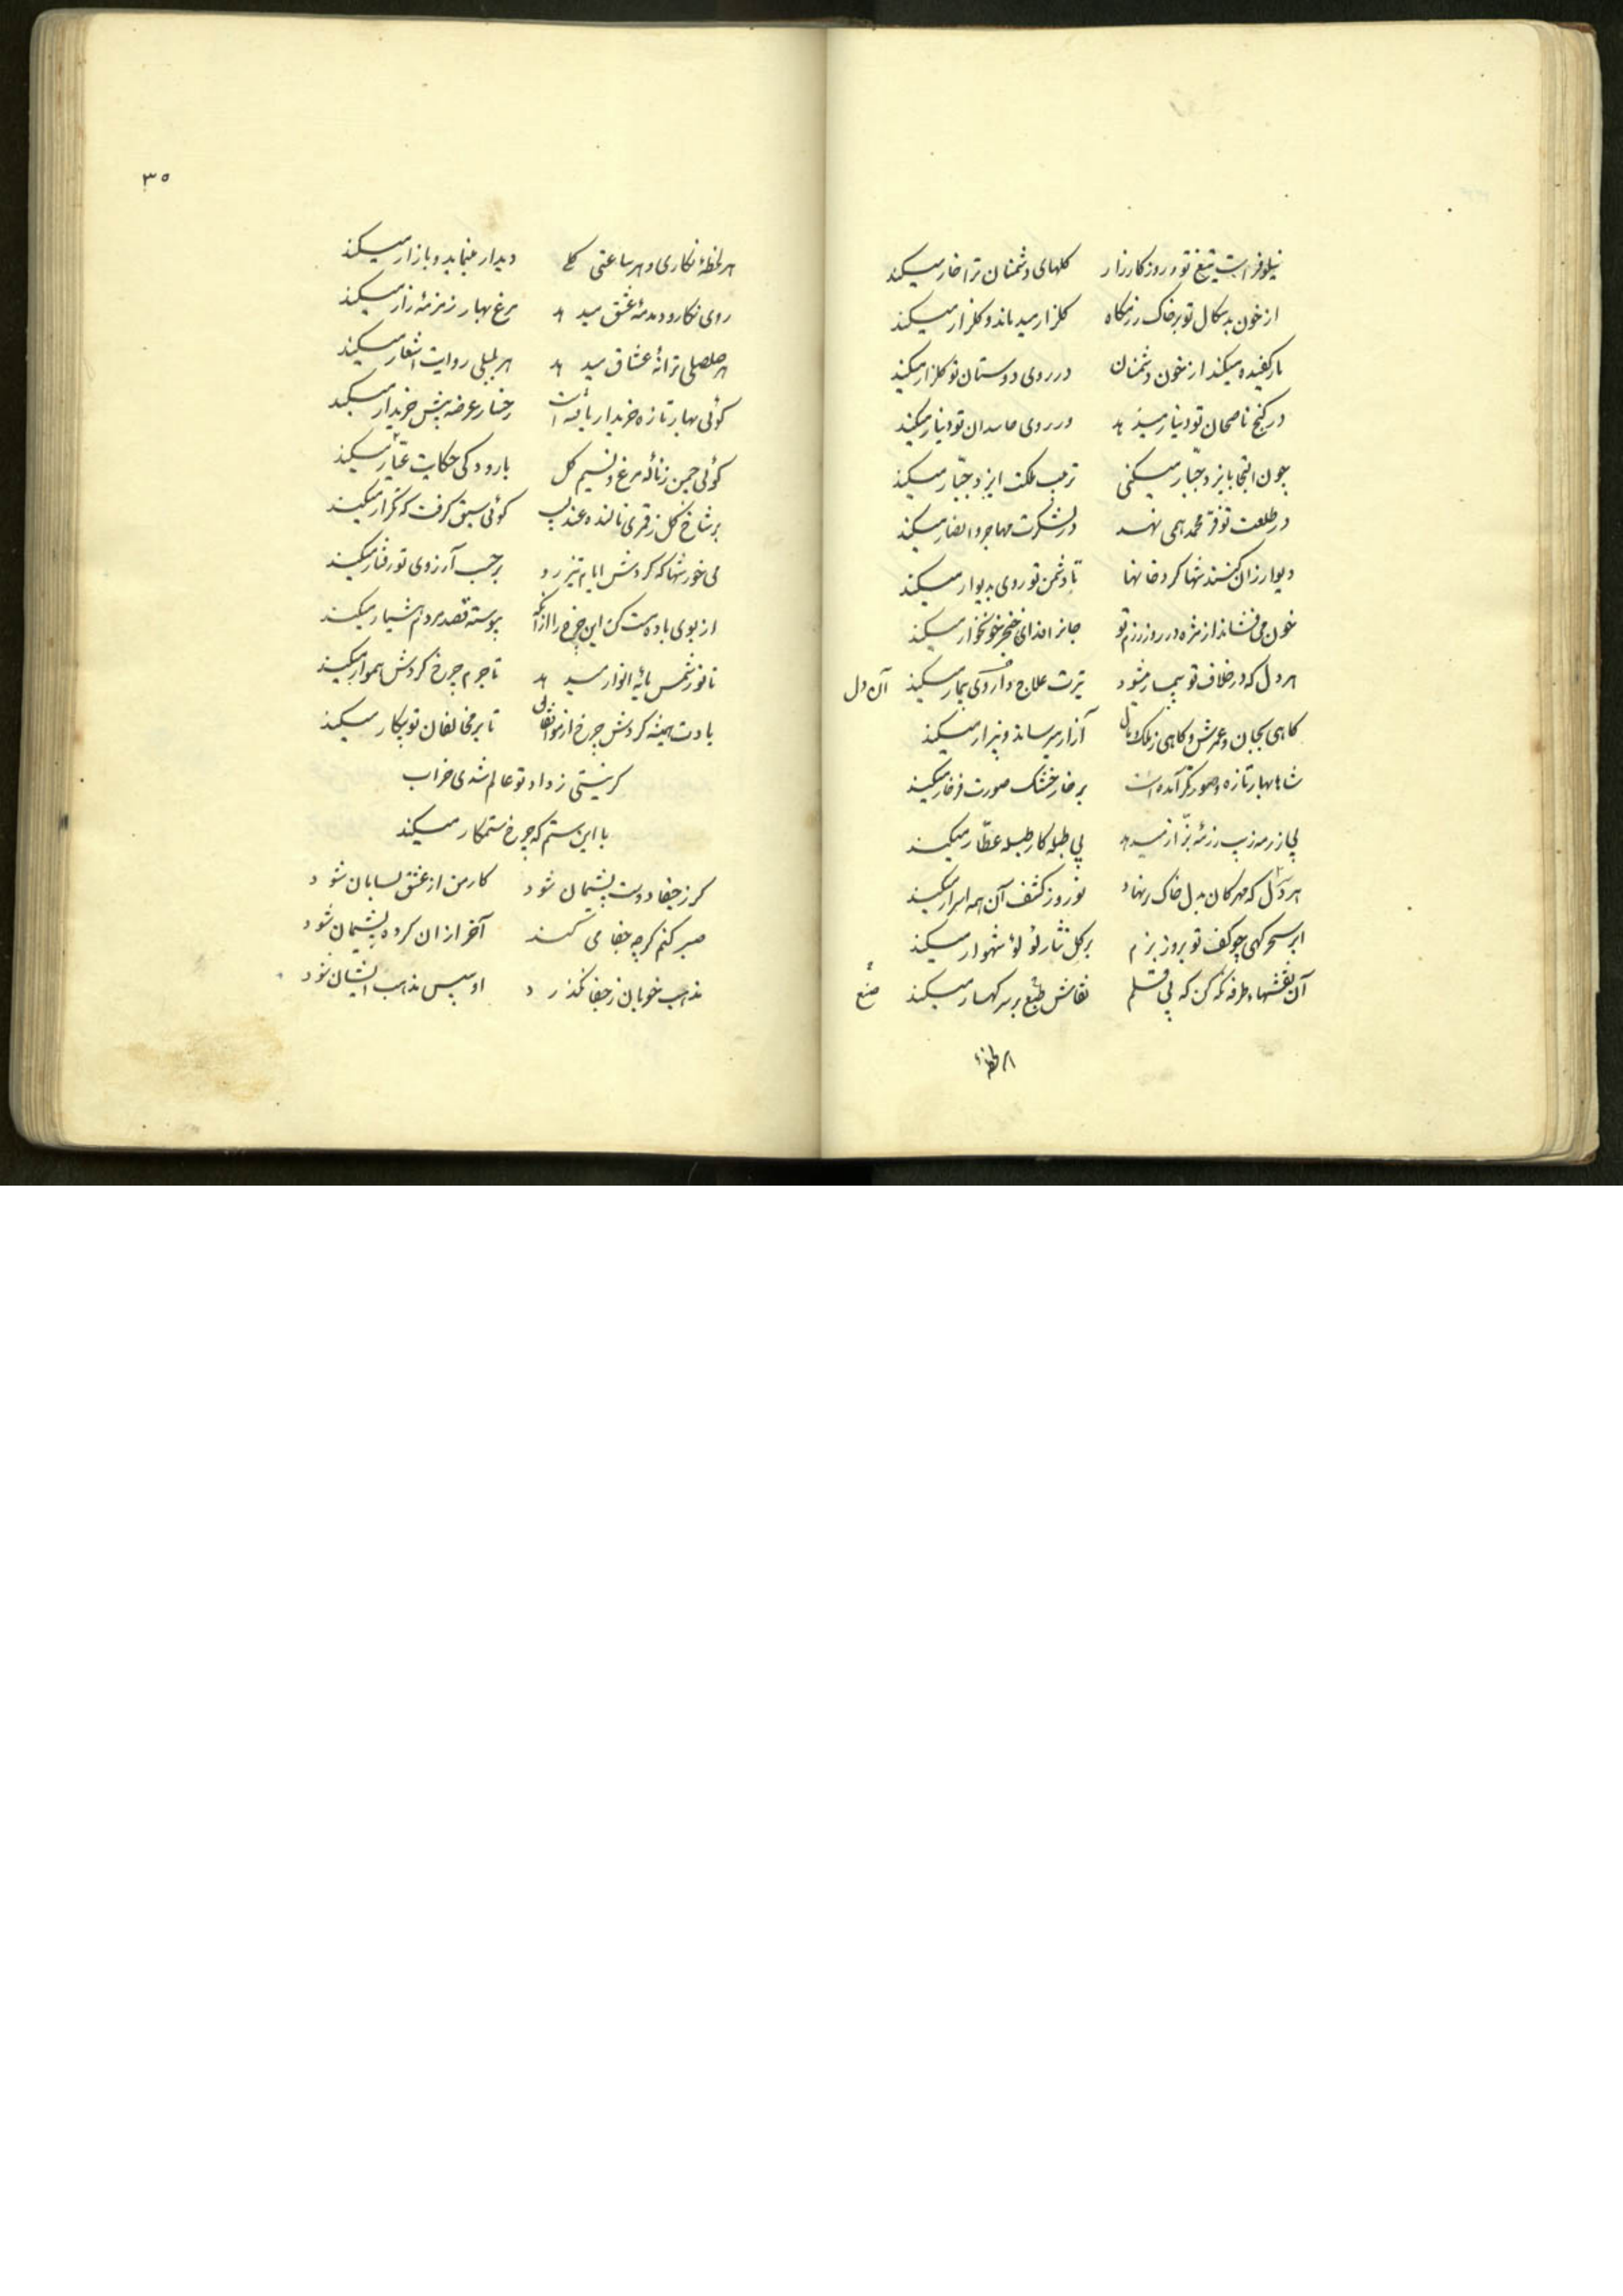 نیلوفر است تیغ تو در روز کارزار کلهای دشمنان ترا خار میکند
از خون بدسکال تو بر خاک رزمکاه کلزار میدماند و کلزار میکند
بار کفیده میکند از خون دشمنان در روی دوستان تو کلزار میکند
در کنج ناصحان تو دینار مینهد در روی حاسدان تو دینار میکند
چون التجا بایزد جبّار میکنی ترتیب ملکت ایزد جبّار میکند
در طلعت تو فرّ محمد همی نهد در لشکرت مهاجر و انصار میکند
دیوار زان کنند شها کرد خانها تا دشمن تو روی بدیوار میکند
خون می‌فشاند از مژه در روز رزم تو جانرا فدای خنجر خونخوار میکند
هر دل که در خلاف تو بیمار میشود تیرت علاج و داروی بیمار میکند آن دل
کاهی بجان و عمرش و کاهی ز ملک و مال آزار میرساند و بیزار میکند
شاها بهار تازه و صورتکر آمده است بر خار خشک صورت فرخار میکند
بی از رمه زیب رزمهٔ بزّاز میدهد بی طبله کار طبلهٔ عطّار میکند
هر دل که مهرکان بدل خاک در نهاد نوروز کشف آن همه اسرار میکند
ابر سحرکهی چو کف تو بروز بزم بر کل نثار لؤلؤ شهوار میکند
آن نقشهاء طرفه نکه کن که بی قلم نقاش طبع بر سر کهسار میکند صنع
هر لحظهٔ
۳۵
هر لحظهٔ نکاری و هر ساعتی کلی دیدار مینماید و بازار میکند
روی نکار و دمدمهٔ عشق میدهد مرغ بهار زمزمهٔ زار میکند
هر صلصلی ترانهٔ عشاق میدهد هر بلبلی روایت اشعار میکند
کوئی بهار تازه خریدار یافته است رخسار عرضه پیش خریدار میکند
کوئی چمن ز نالهٔ مرغ و نسیم کل با رودکی حکایت عیّار میکند
بر شاخ کل ز قمری نالنده عندلیب کوئی سبق کرفت که تکرار میکند
می خور شها که کردش ایام تیزرو بر حسب آرزوی تو رفتار میکند
از بوی باده مست کن این چرخ را از آنکه پیوسته قصد مردم هشیار میکند
تا نور شمس مایهٔ انوار میدهد تا جرم چرخ کردش هموار میکند
بادت همیشه کردش چرخ از موافقان تا بر مخالفان تو پیکار میکند
کر نیستی ز داد تو عالم شدی خراب
با این ستم که چرخ ستمکار میکند
کر ز جفا دوست پشیمان شود کار من از عشق بسامان شود
صبر کنم کرچه جفا می کند آخر از آن کرده پشیمان شود
مذهب خوبان ز جفا نکذرد او سپس مذهب ایشان شود